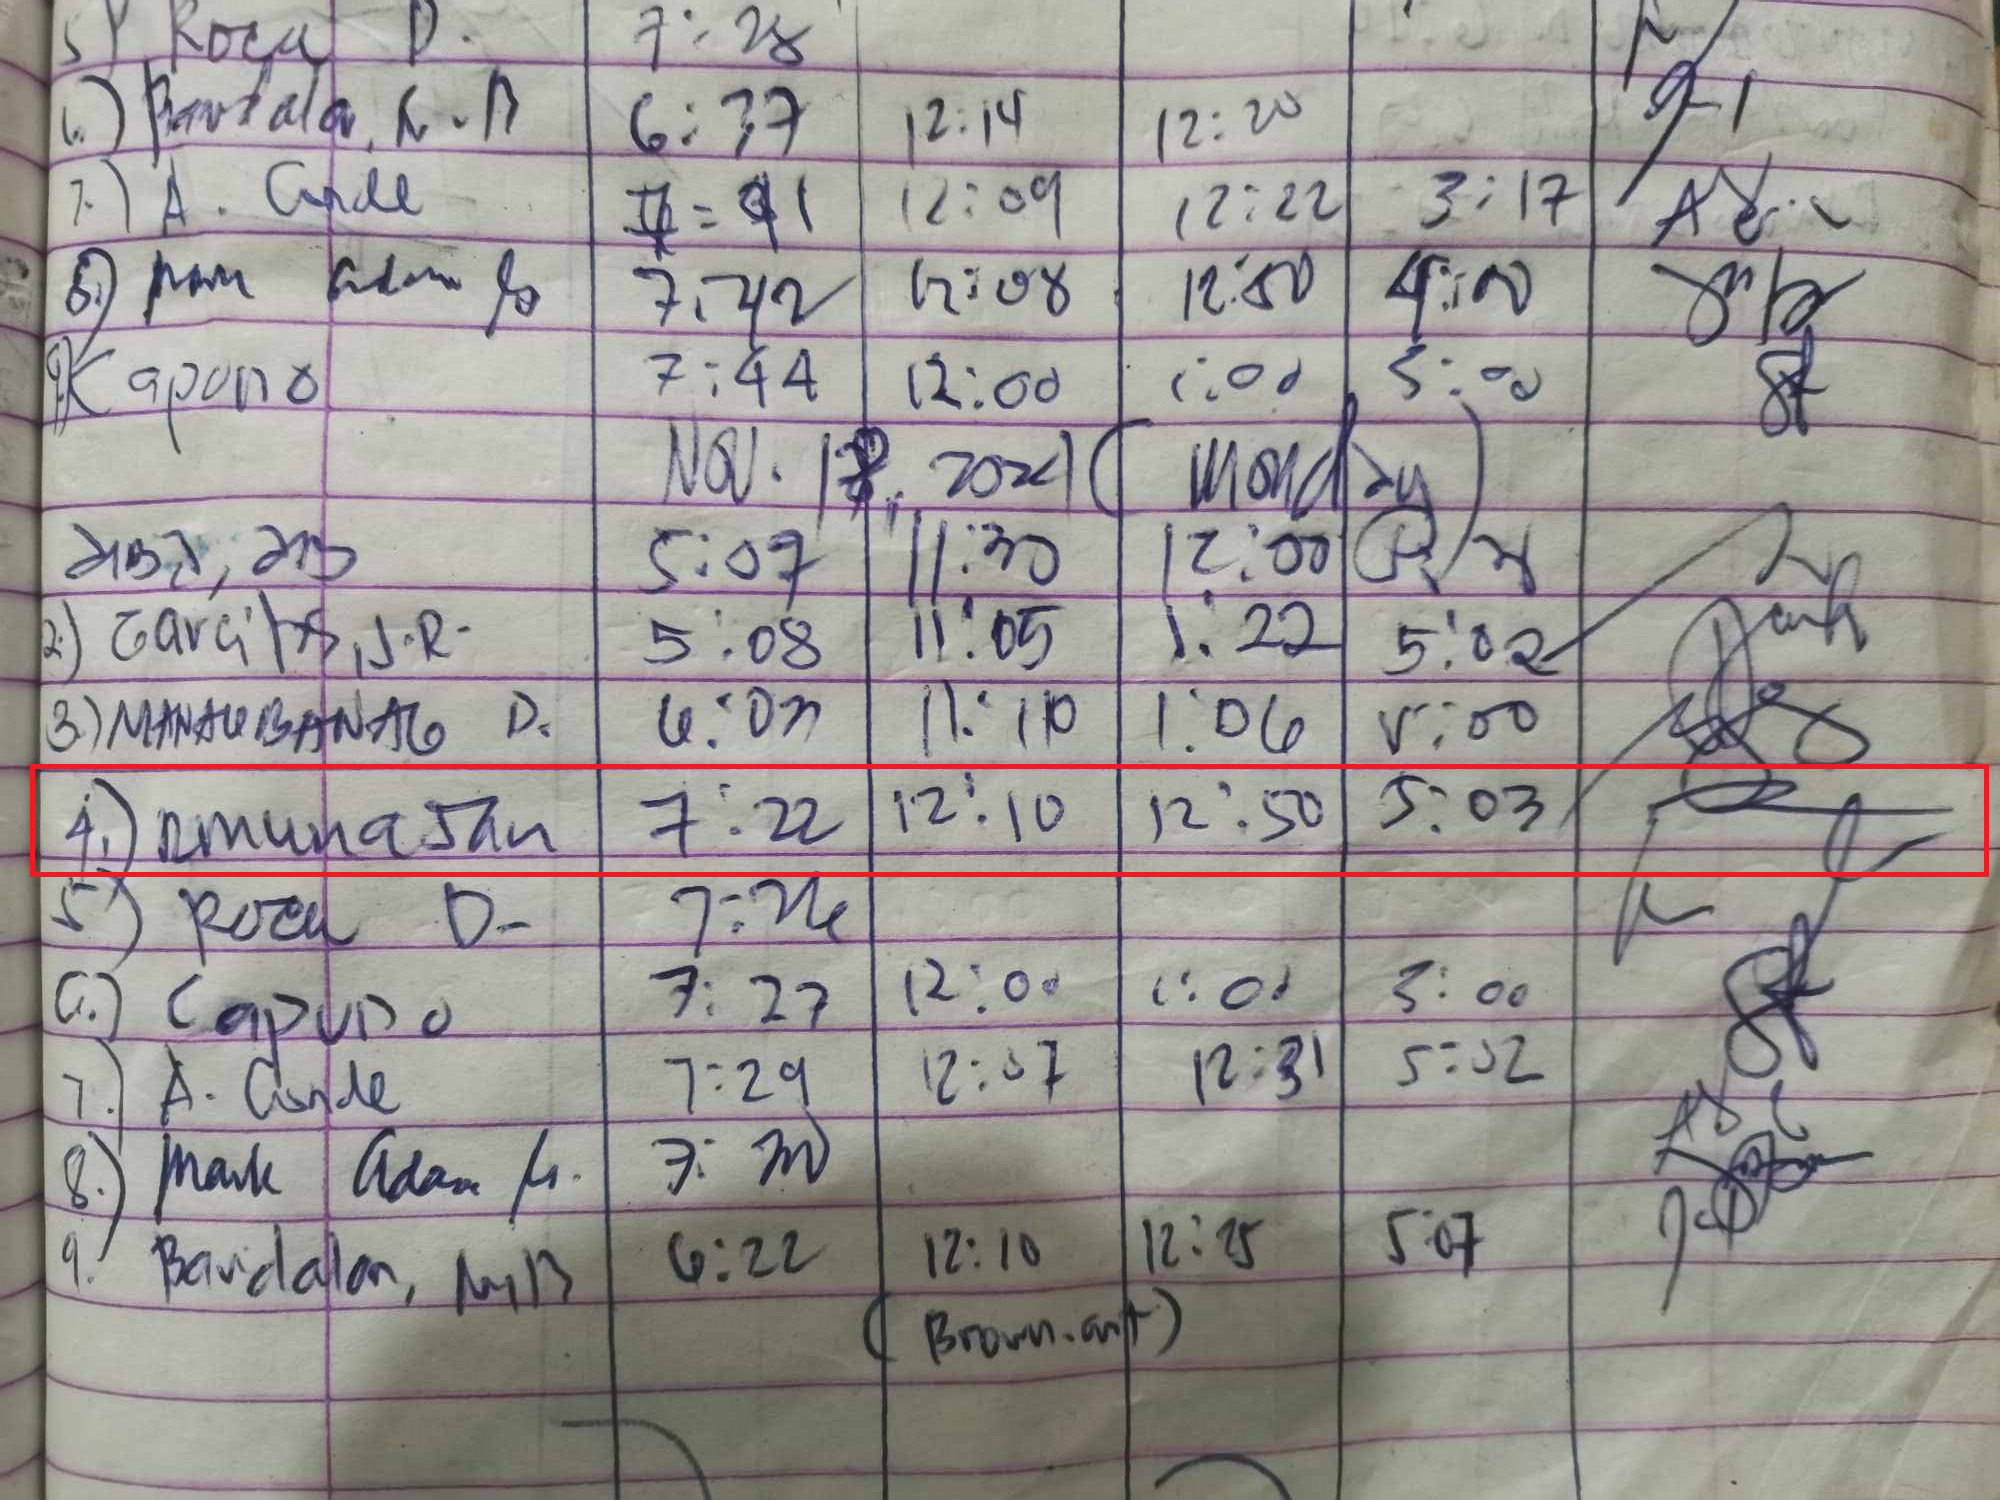 5) Roca D. 7:28
6.) Bandalan, N.B 6:37 12:14 12:20
7.) A. Conde 12:09 12:22 3:17
8.) Adam 7:42 12:08 12:50 4:00
9) Capuno 7:44 12:00 1:00 5:00
Nov. 18, 2024 (Monday)
5:07 11:30 12:00
2.) J.R. 5:08 11:05 1:22 5:02
3.) MANAGBANAG D. 11:10 1:06 5:00
4.) 7:22 12:10 12:50 5:03
5) Roca D. 7:26
6.) Capuno 7:27 12:00 1:00 5:00
7.) A. Conde 7:29 12:07 12:31 5:02
8.) Mark Adam G. 7:30
9. Bandalan, N.B 6:22 12:10 12:25 5:07
(Brown-out)